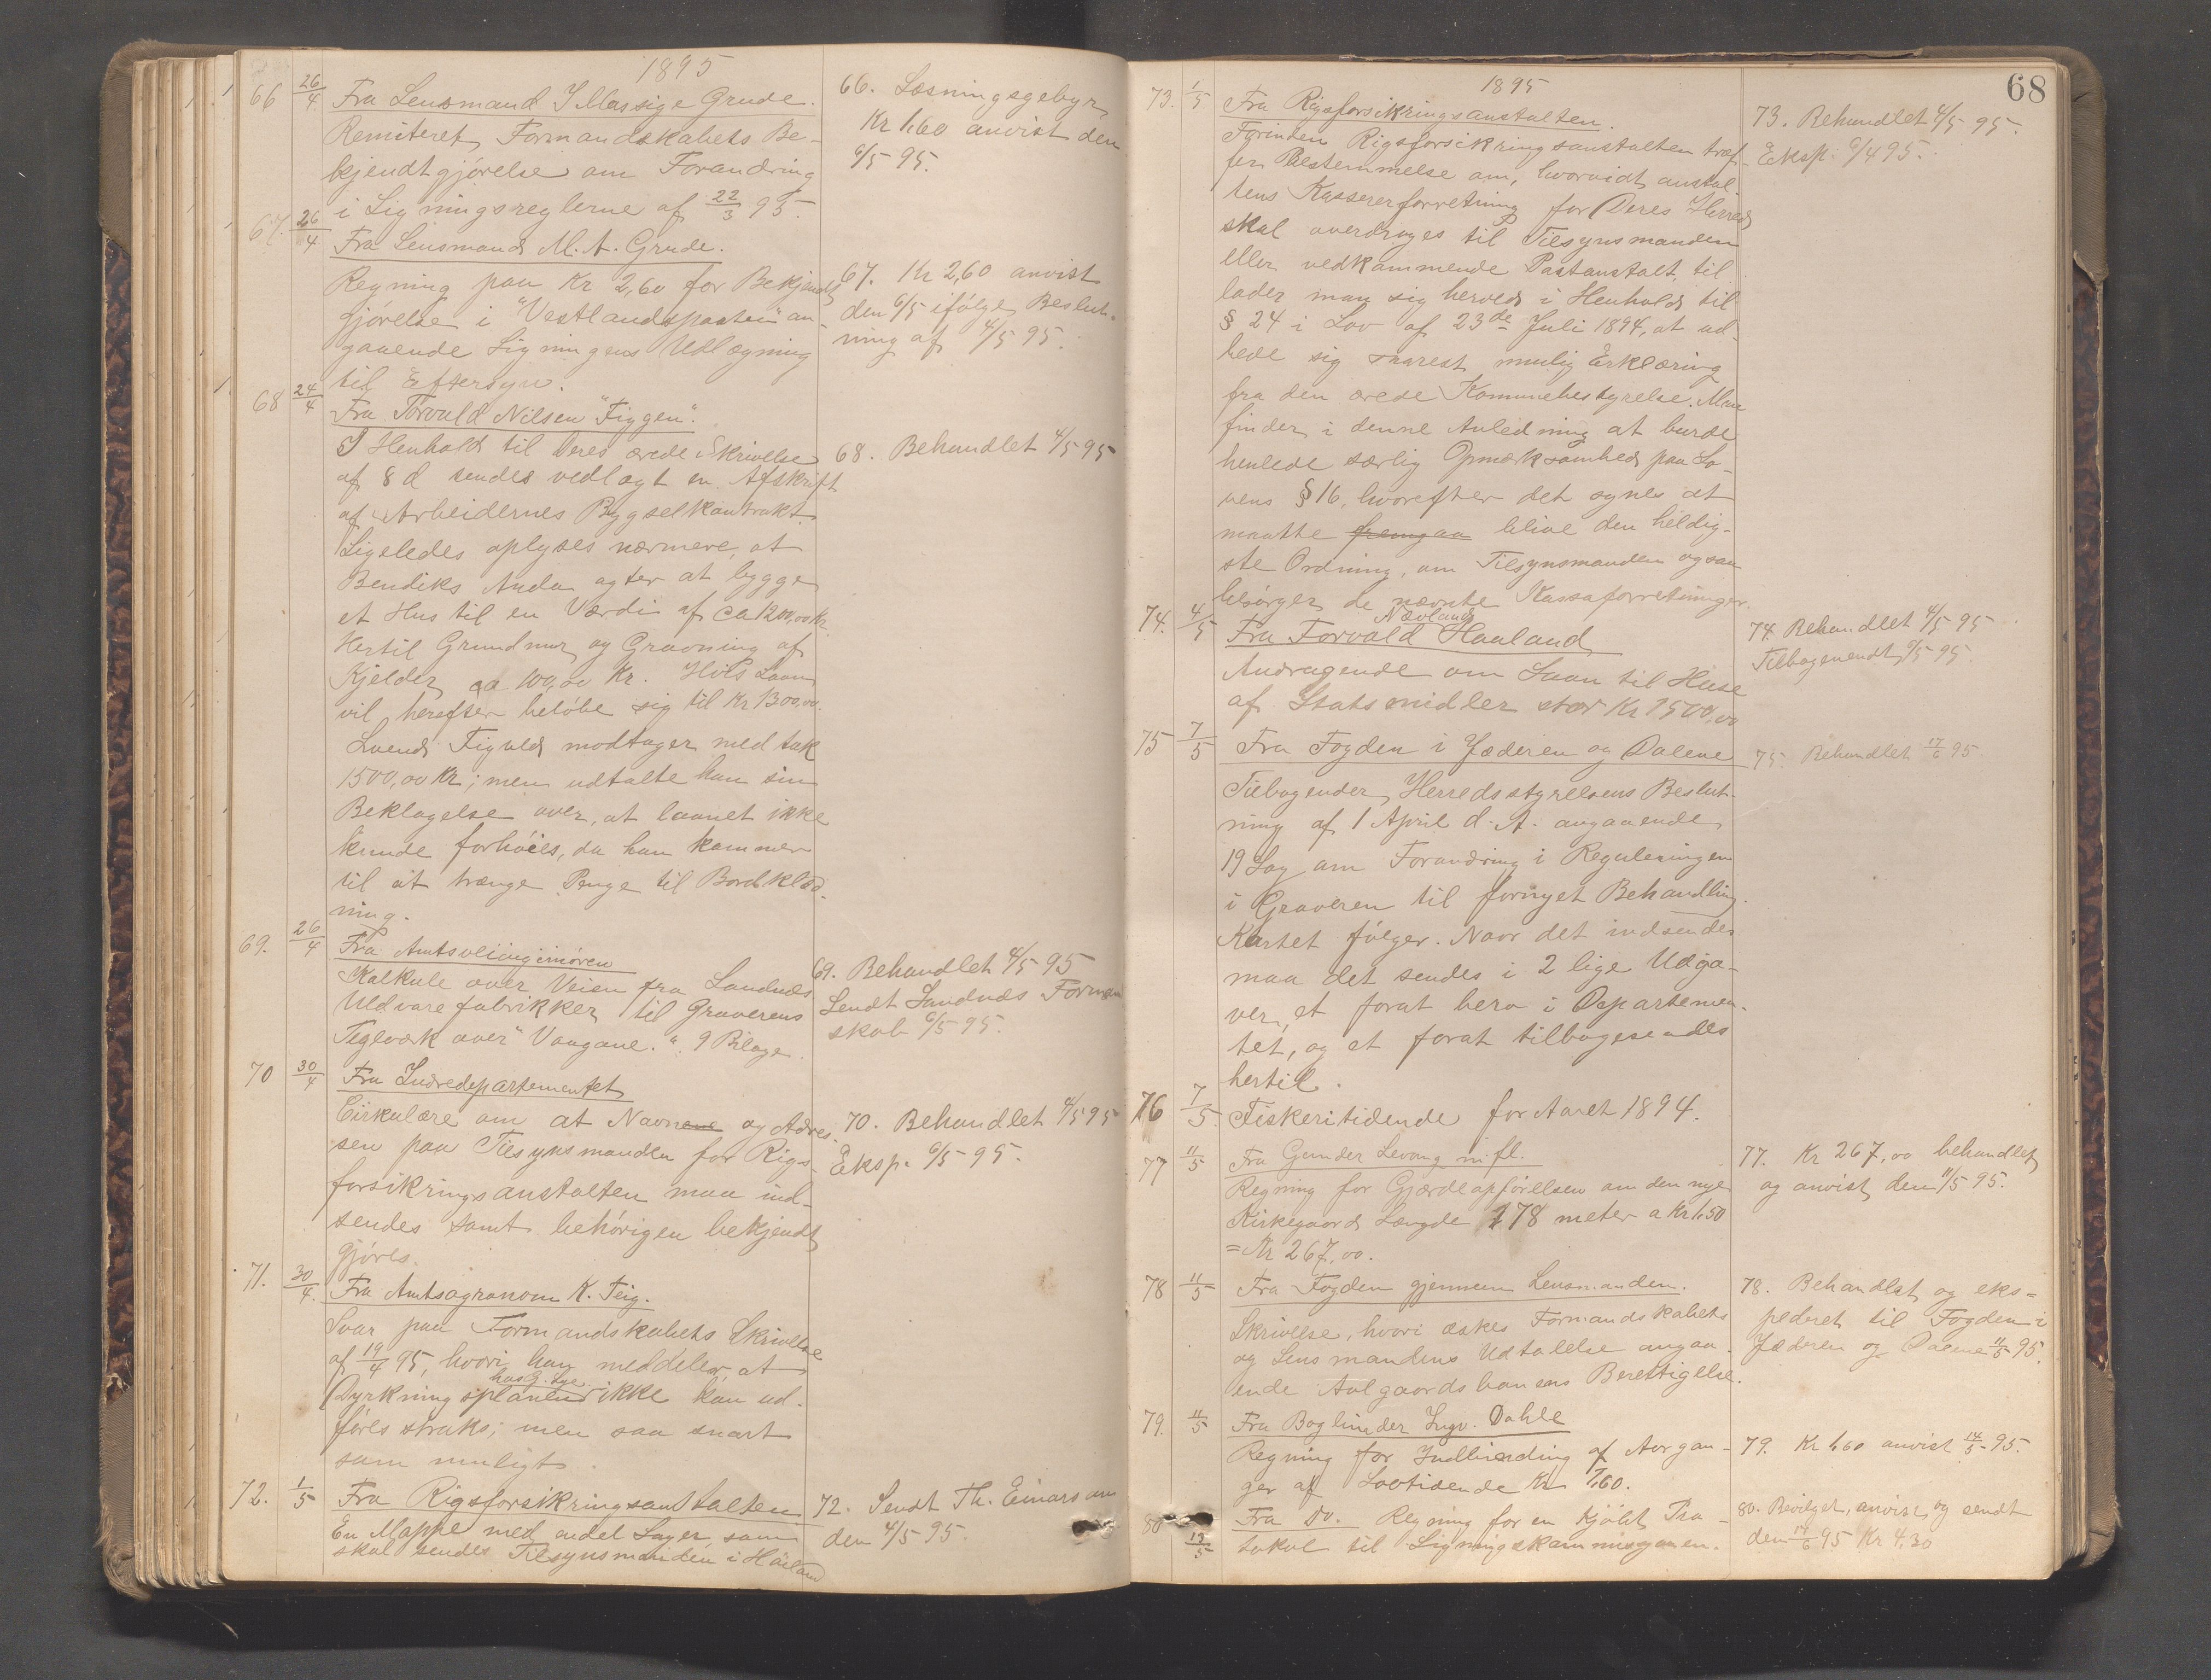 1895
66 26/4 Fra Lensmand I Massige Grude.
Remiteret Formandskabets Be-
kjendtgjørelse om Forandring
i Ligningsreglerne af 22/3 95.
66. Læsningsgebyr
Kr 1,60 anvist den
6/5 95.
67. 26/4 Fra Lensmand M. A. Grude.
Regning paa Kr 2,60 for Bekjendt
gjørelse i "Vestlandsposten" an-
gaaende Ligningens Udlægning
til Eftersyn.
67. Kr 2,60 anvist
den 6/5 ifølge Beslut-
ning af 4/5 95.
68 24/4 Fra Torvald Nilsen "Figgen".
I Henhold til Deres ærede Skrivelse
af 8 d sendes vedlagt en Afskrift
af Arbeidernes Bygselkontrakt.
Ligeledes oplyses nærmere, at
Bendiks Auda agter at bygge
et Hus til en Værdi af ca 1200,00 Kr.
Hertil Grundmur og Gravning af
Kjelder ca 100,00 Kr. Hvis Laan
vil herefter beløbe sig til Kr 1300,00.
Svend Figved modtager med tak
1500,00 Kr; men udtalte han sin
Beklagelse over, at laanet ikke
kunde forhøies, da han kommer
til at trænge Penge til Bordklæd-
ning.
68. Behandlet 4/5 95
69. 26/4 Fra Amtsveiingeniøren
Kalkule over Veien fra Sandnes
Uldvarefabrikker til Graverens
Teglværk over "Vaagane". 9 Bilage.
69. Behandlet 4/5 95
Sendt Sandnes Forman
skab 6/5 95.
70 30/4 Fra Indredepartementet
Cirkulære om at Navnene og Adres-
sen paa Tilsynsmanden for Rigs-
forsikringsanstalten maa ind-
sendes samt behørigen bekjendt
gjøres.
70. Behandlet 4/5 95
Eksp. 6/5 95.
71. 30/4 Fra Amtsagronom K. Teig.
Svar paa Formandskabets Skrivelse
af 19/4 95, hvori han meddeler, at
hos G. Lye
Dyrkningsplanen ikke kan ud-
føres straks; men saa snart
som muligt.
72. 1/5 Fra Rigsforsikringsanstalten
En Mappe med endel Sager som
skal sendes Tilsynsmanden i Høiland
72. Sendt Th. Einarson
den 4/5 95.
68
1895
73. 1/5 Fra Rigsforsikringsanstalten.
Forinden Rigsforsikringsanstalten træf-
fer Bestemmelse om, hvorvidt anstal-
tens Kassererforretning for Deres Herred
skal overdrages til Tilsynsmanden
eller vedkommende Postanstalt til
lader man sig herved i Henhold til
§ 24 i Lov af 23de Juli 1894, at ud-
bede sig snarest mulig Erklæring
fra den ærede Kommunebestyrelse. Man
finder i denne Anledning at burde
henlede særlig Opmærksomhed paa Lo-
vens § 16, hvorefter det synes at
maatte fremgaa blive den heldig-
ste Ordning, om Tilsynsmanden ogsaa
besørger de nævnte Kassaforretninger.
73. Behandlet 4/5 95.
Eksp. 6/4 95.
74. 4/5 Nævland
Fra Torvald Haaland
Andragende om Laan til Huse
af Statsmidler stor Kr 1500,00
74 Behandlet 4/5 95
Tilbagesendt 6/5 95.
75 7/5 Fra Fogden i Jæderen og Dalene
Tilbagender Herredsstyrelsens Beslut-
ning af 1 April d. A. angaaende
19 Sag om Forandring i Reguleringen
i Graveren til fornyet Behandling.
Kartet følger. Naar det indsendes
maa det sendes i 2 lige Udga-
ver, et forat bero i Departemen-
tet, og et forat tilbagesendes
hertil.
75. Behandlet 17/6 95.
76 7/5 Fiskeritidende for Aaret 1894.
77 11/5 Fra Gunder Levang m. fl.
Regning for Gjærdeopførelsen om den nye
Kirkegaard Længde 178 meter a Kr 1,50
= Kr 267,00.
77. Kr 267,00 behandlet
og anvist den 11/5 95.
78 11/5 Fra Fogden gjennem Lensmanden.
Skrivelse, hvori æskes Formandskabets
og Lensmandens Udtalelse angaa-
ende Aalgaardsbanens Berettigelse.
78. Behandlet og eks=
pederet til Fogden i
Jæderen og Dalene 11/5 95.
79. 11/5 Fra Bogbinder Ingv. Dahle
Regning for Indbinding af Aargan-
ger af Lovtidende Kr 1,60.
79. Kr 1,60 anvist 14/5 95.
80 13/5 Fra Do. Regning for en kjøbt Pro-
tokol til Ligningskommisjonen.
80. Bevilget, anvist og sendt
den 17/6 95 Kr 4,30